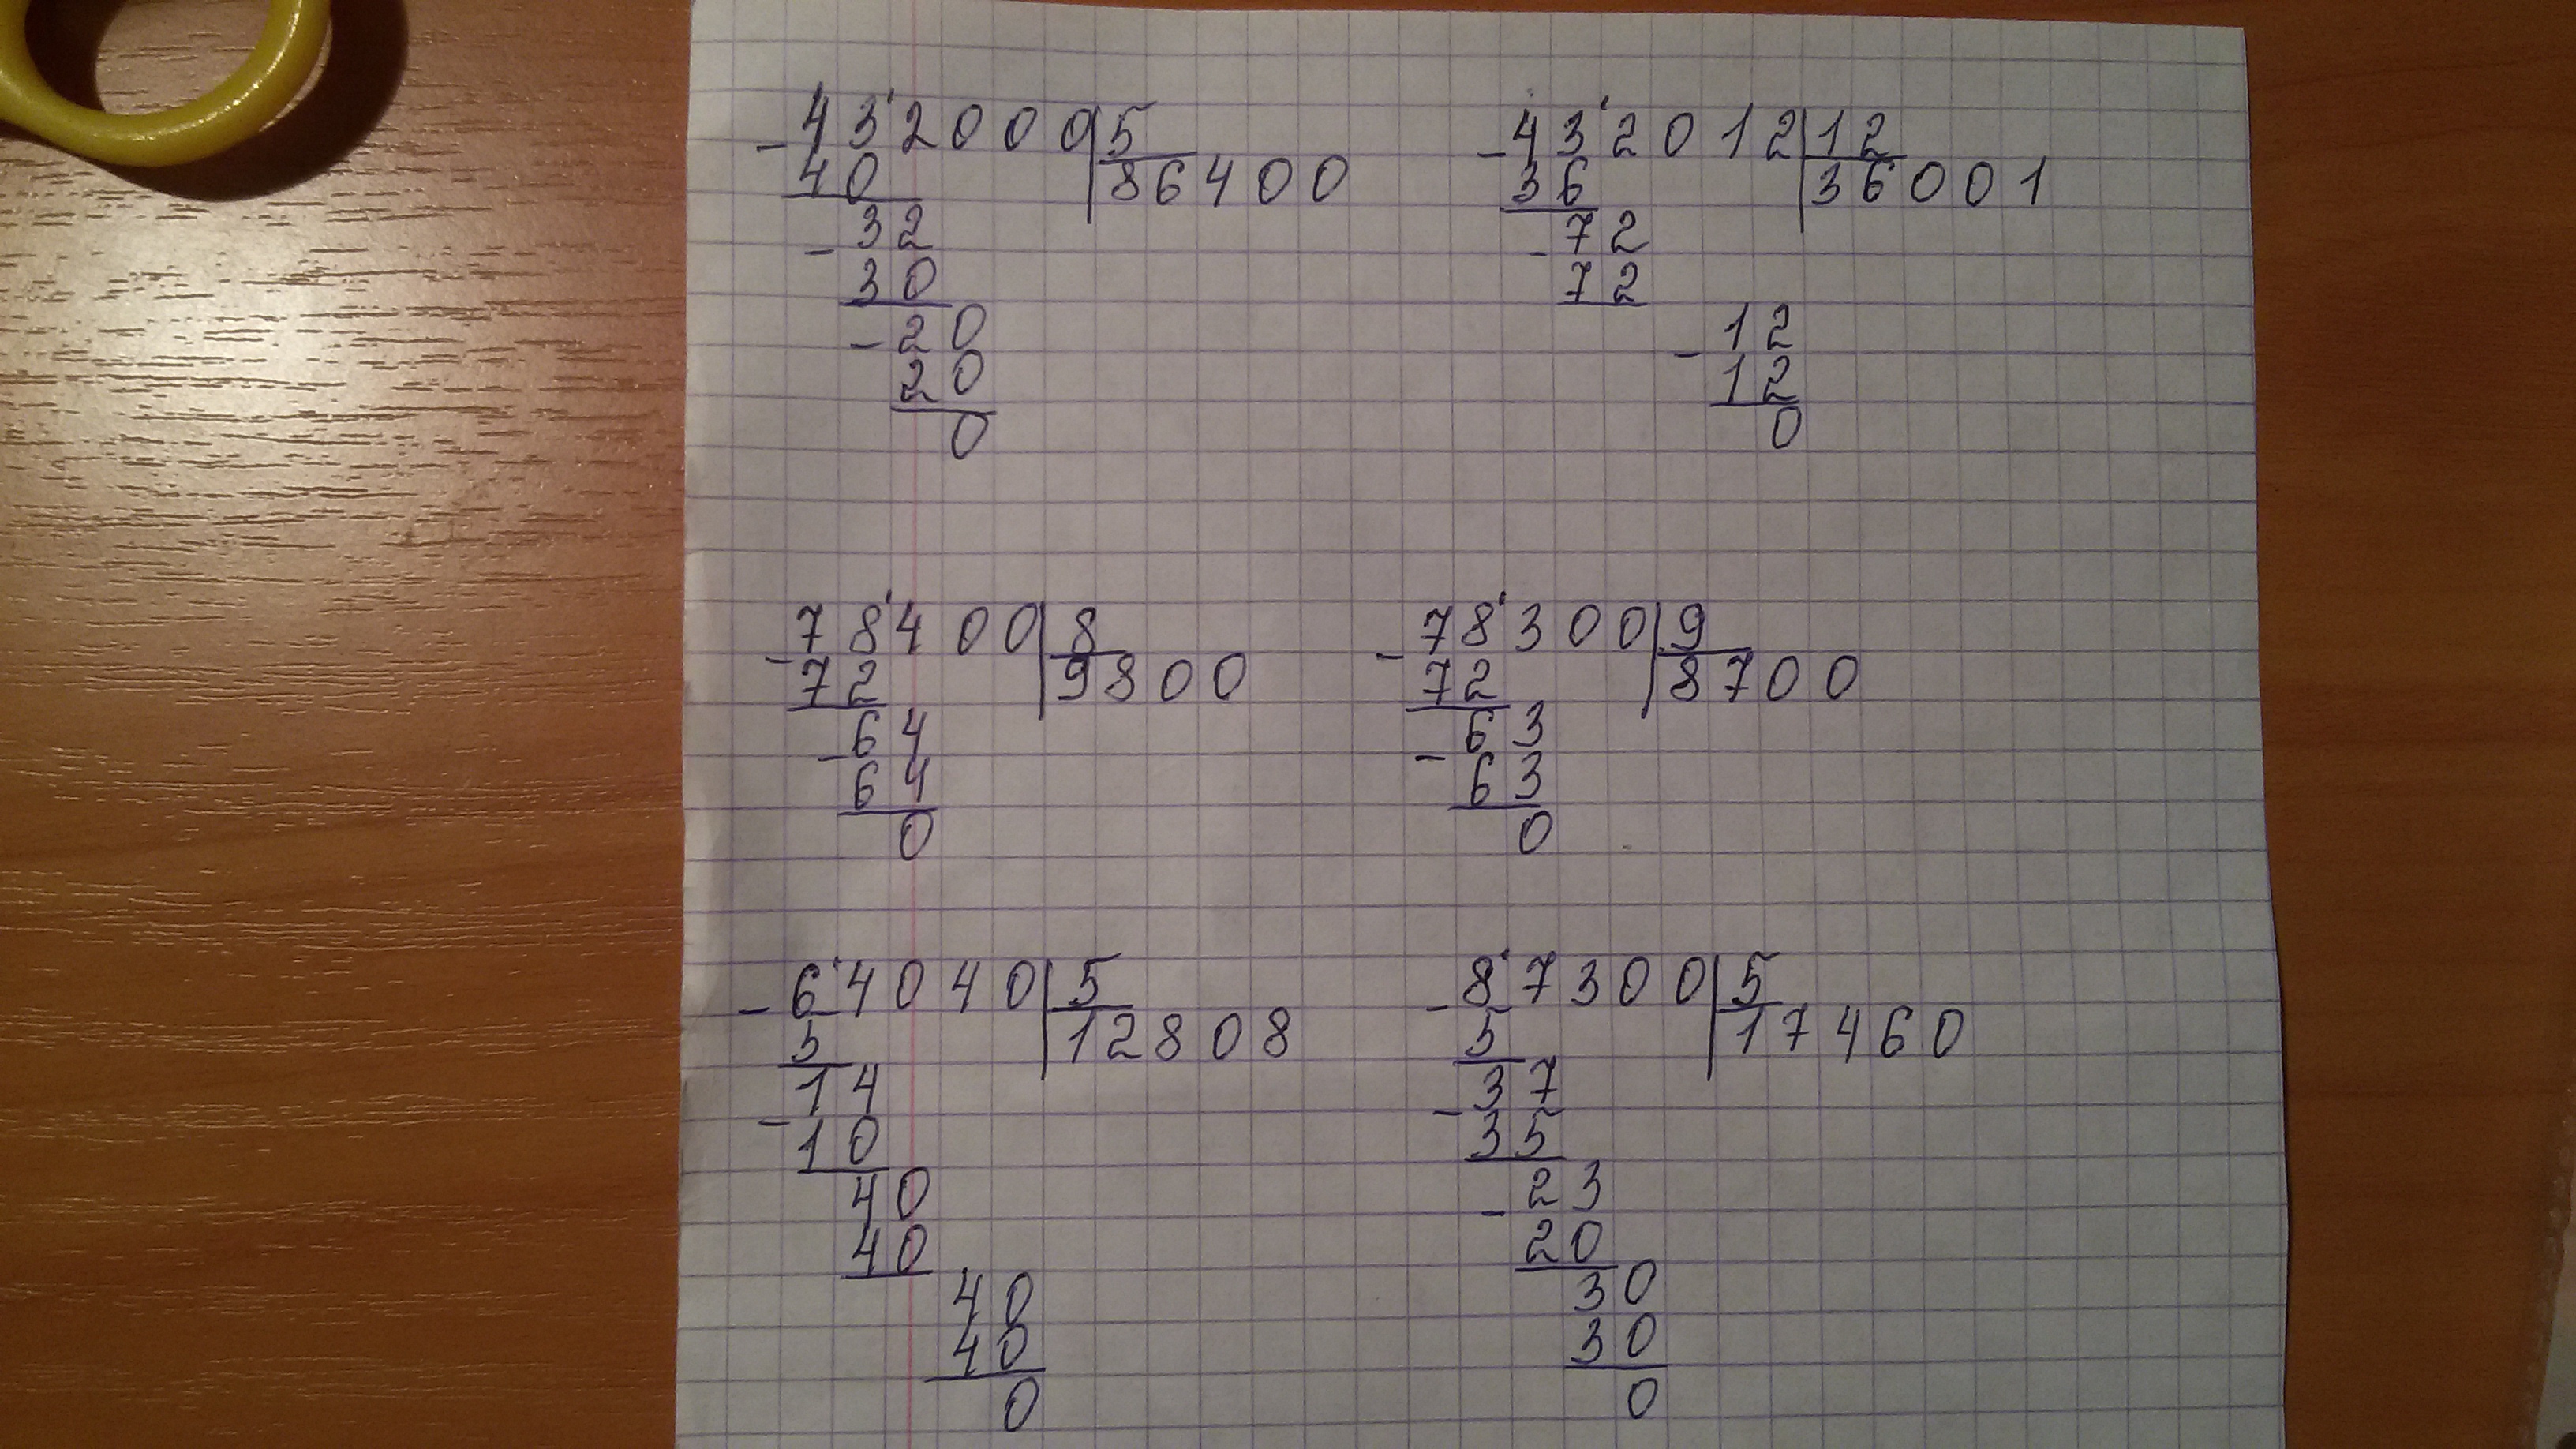 - 43'2000|5
40 |86400
- 32
30
- 20
20
0
- 43'2012|12
36 |36001
- 72
72
- 12
12
0
- 78'400|8
72 |9800
- 64
64
0
- 78'300|9
72 |8700
- 63
63
0
- 6'4040|5
5 |12808
- 14
10
40
40
40
40
0
- 8'7300|5
5 |17460
- 37
35
- 23
20
30
30
0